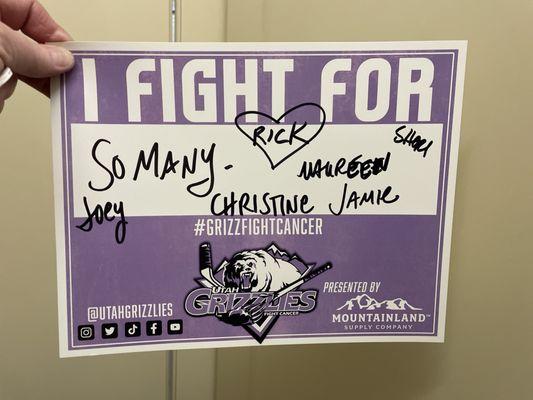 I FIGHT FOR
RICK
SHERI
SO MANY.
MAUREEN
JOEY
CHRISTINE JAMIE
#GRIZZFIGHTCANCER
UTAH
GRIZZLIES
FIGHT CANCER
@UTAHGRIZZLIES
PRESENTED BY
MOUNTAINLAND
SUPPLY COMPANY